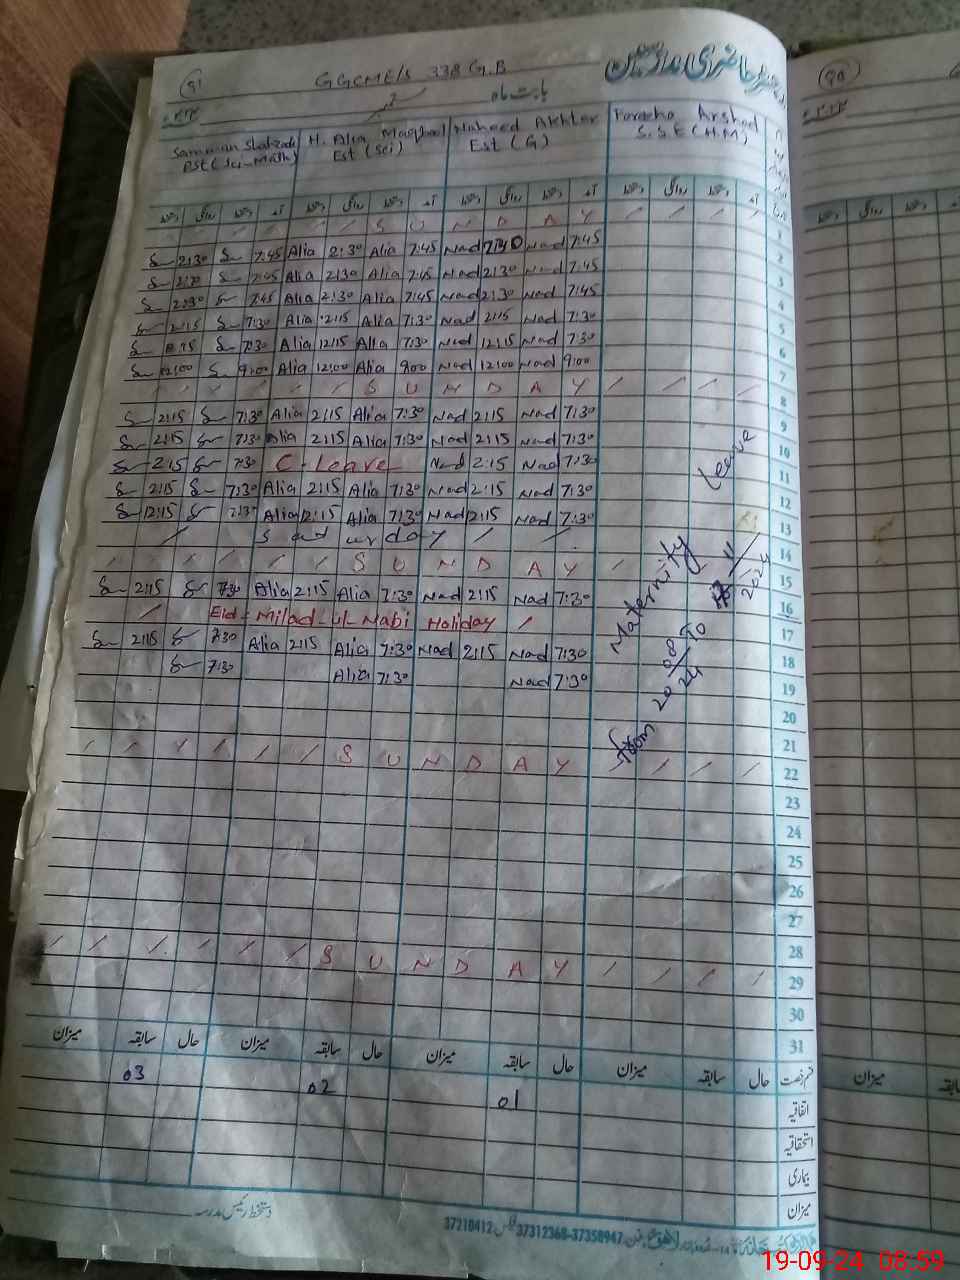 91
GGCME/S 338 G.B
رجسٹر حاضری مدرسین
بابت ماہ
H. Alia Maqbool
Est (Sci)
Naheed Akhter
Est (G)
Arshad
S.S.E (H.M)
دستخط روانگی دستخط آمد دستخط روانگی دستخط آمد دستخط روانگی دستخط آمد دستخط روانگی دستخط آمد
S U N D A Y 1
2:30 7:45 Alia 2:30 Alia 7:45 Nad Nad 7:45 2
2:30 7:45 Alia 2:30 Alia 7:45 Nad 2:30 Nad 7:45 3
2:30 7:45 Alia 2:30 Alia 7:45 Nad 2:30 Nad 7:45 4
2:15 7:30 Alia 2:15 Alia 7:30 Nad 2:15 Nad 7:30 5
7:30 Alia 12:15 Alia 7:30 Nad 12:15 Nad 7:30 6
12:00 9:00 Alia 12:00 Alia 9:00 Nad 12:00 Nad 9:00 7
S U N D A Y 8
2:15 7:30 Alia 2:15 Alia 7:30 Nad 2:15 Nad 7:30 9
2:15 7:30 Alia 2:15 Alia 7:30 Nad 2:15 Nad 7:30 10
2:15 7:30 C - Leave Nad 2:15 Nad 7:30 11
2:15 7:30 Alia 2:15 Alia 7:30 Nad 2:15 Nad 7:30 12
12:15 7:30 Alia 12:15 Alia 7:30 Nad 12:15 Nad 7:30 13
Saturday 14
S U N D A Y 15
2:15 7:30 Alia 2:15 Alia 7:30 Nad 2:15 Nad 7:30 16
Eid - Milad-ul-Nabi Holiday 17
2:15 7:30 Alia 2:15 Alia 7:30 Nad 2:15 Nad 7:30 18
7:30 Alia 7:30 Nad 7:30 19
20
21
S U N D A Y 22
23
24
25
26
27
28
S U N D A Y 29
30
31
Maternity leave
from 20/08 24 To 2024
میزان سابقہ حال میزان سابقہ حال میزان سابقہ حال میزان سابقہ حال قسم رخصت
03 02 01 اتفاقیہ
استحقاقیہ
بیماری
میزان
دستخط رئیس مدرسہ
37210412 37312368-37358947
میزان
19-09-24 08:59